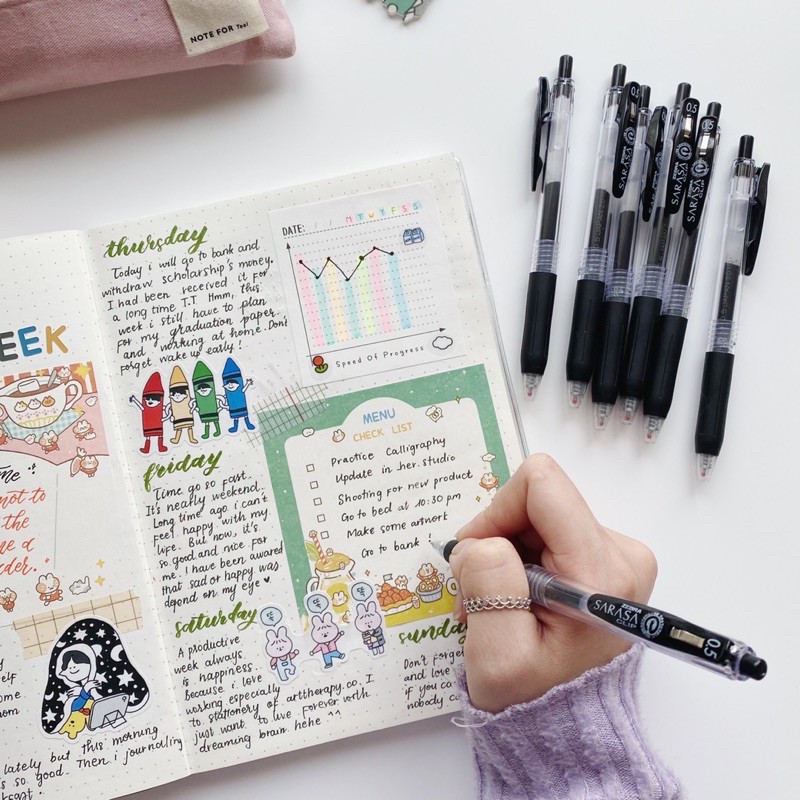 NOTE FOR You!
EEK
me
not to
the
me a
elf
ome
lately but this morning
s so good. Then i journaling
thursday
Today i will go to bank and
withdraw scholarship's money.
I had been received it for
a long time T.T Hmm, this
week i still have to plan
for my graduation paper
and working at home. Dont
forget wake up early!
DATE: / /
M T W T F S S
Speed Of Progress
friday
Time go so fast.
It's nearly weekend.
Long time ago i can't
feel happy with my
life. But now, it's
so good and nice for
me. I have been awared
that sad or happy was
depend on my eye
MENU
CHECK LIST
Practice Calligraphy
Update in her.studio
Shooting for new product
Go to bed at 10:30 pm
Make some artwork
Go to bank
saturday
A productive
week always
is happiness.
Because i love
working especially
to stationery of arttherapy.co. I
just want to live forever with
dreaming brain. hehe ^^
sunday
Don't forget
and love
if you c
nobody c
0.5
ZEBRA
SARASA
CLIP
0.5
SARASA
CLIP
0.5
ZEBRA
SARASA
CLIP
ZEBRA
SARASA
CLIP
0.5